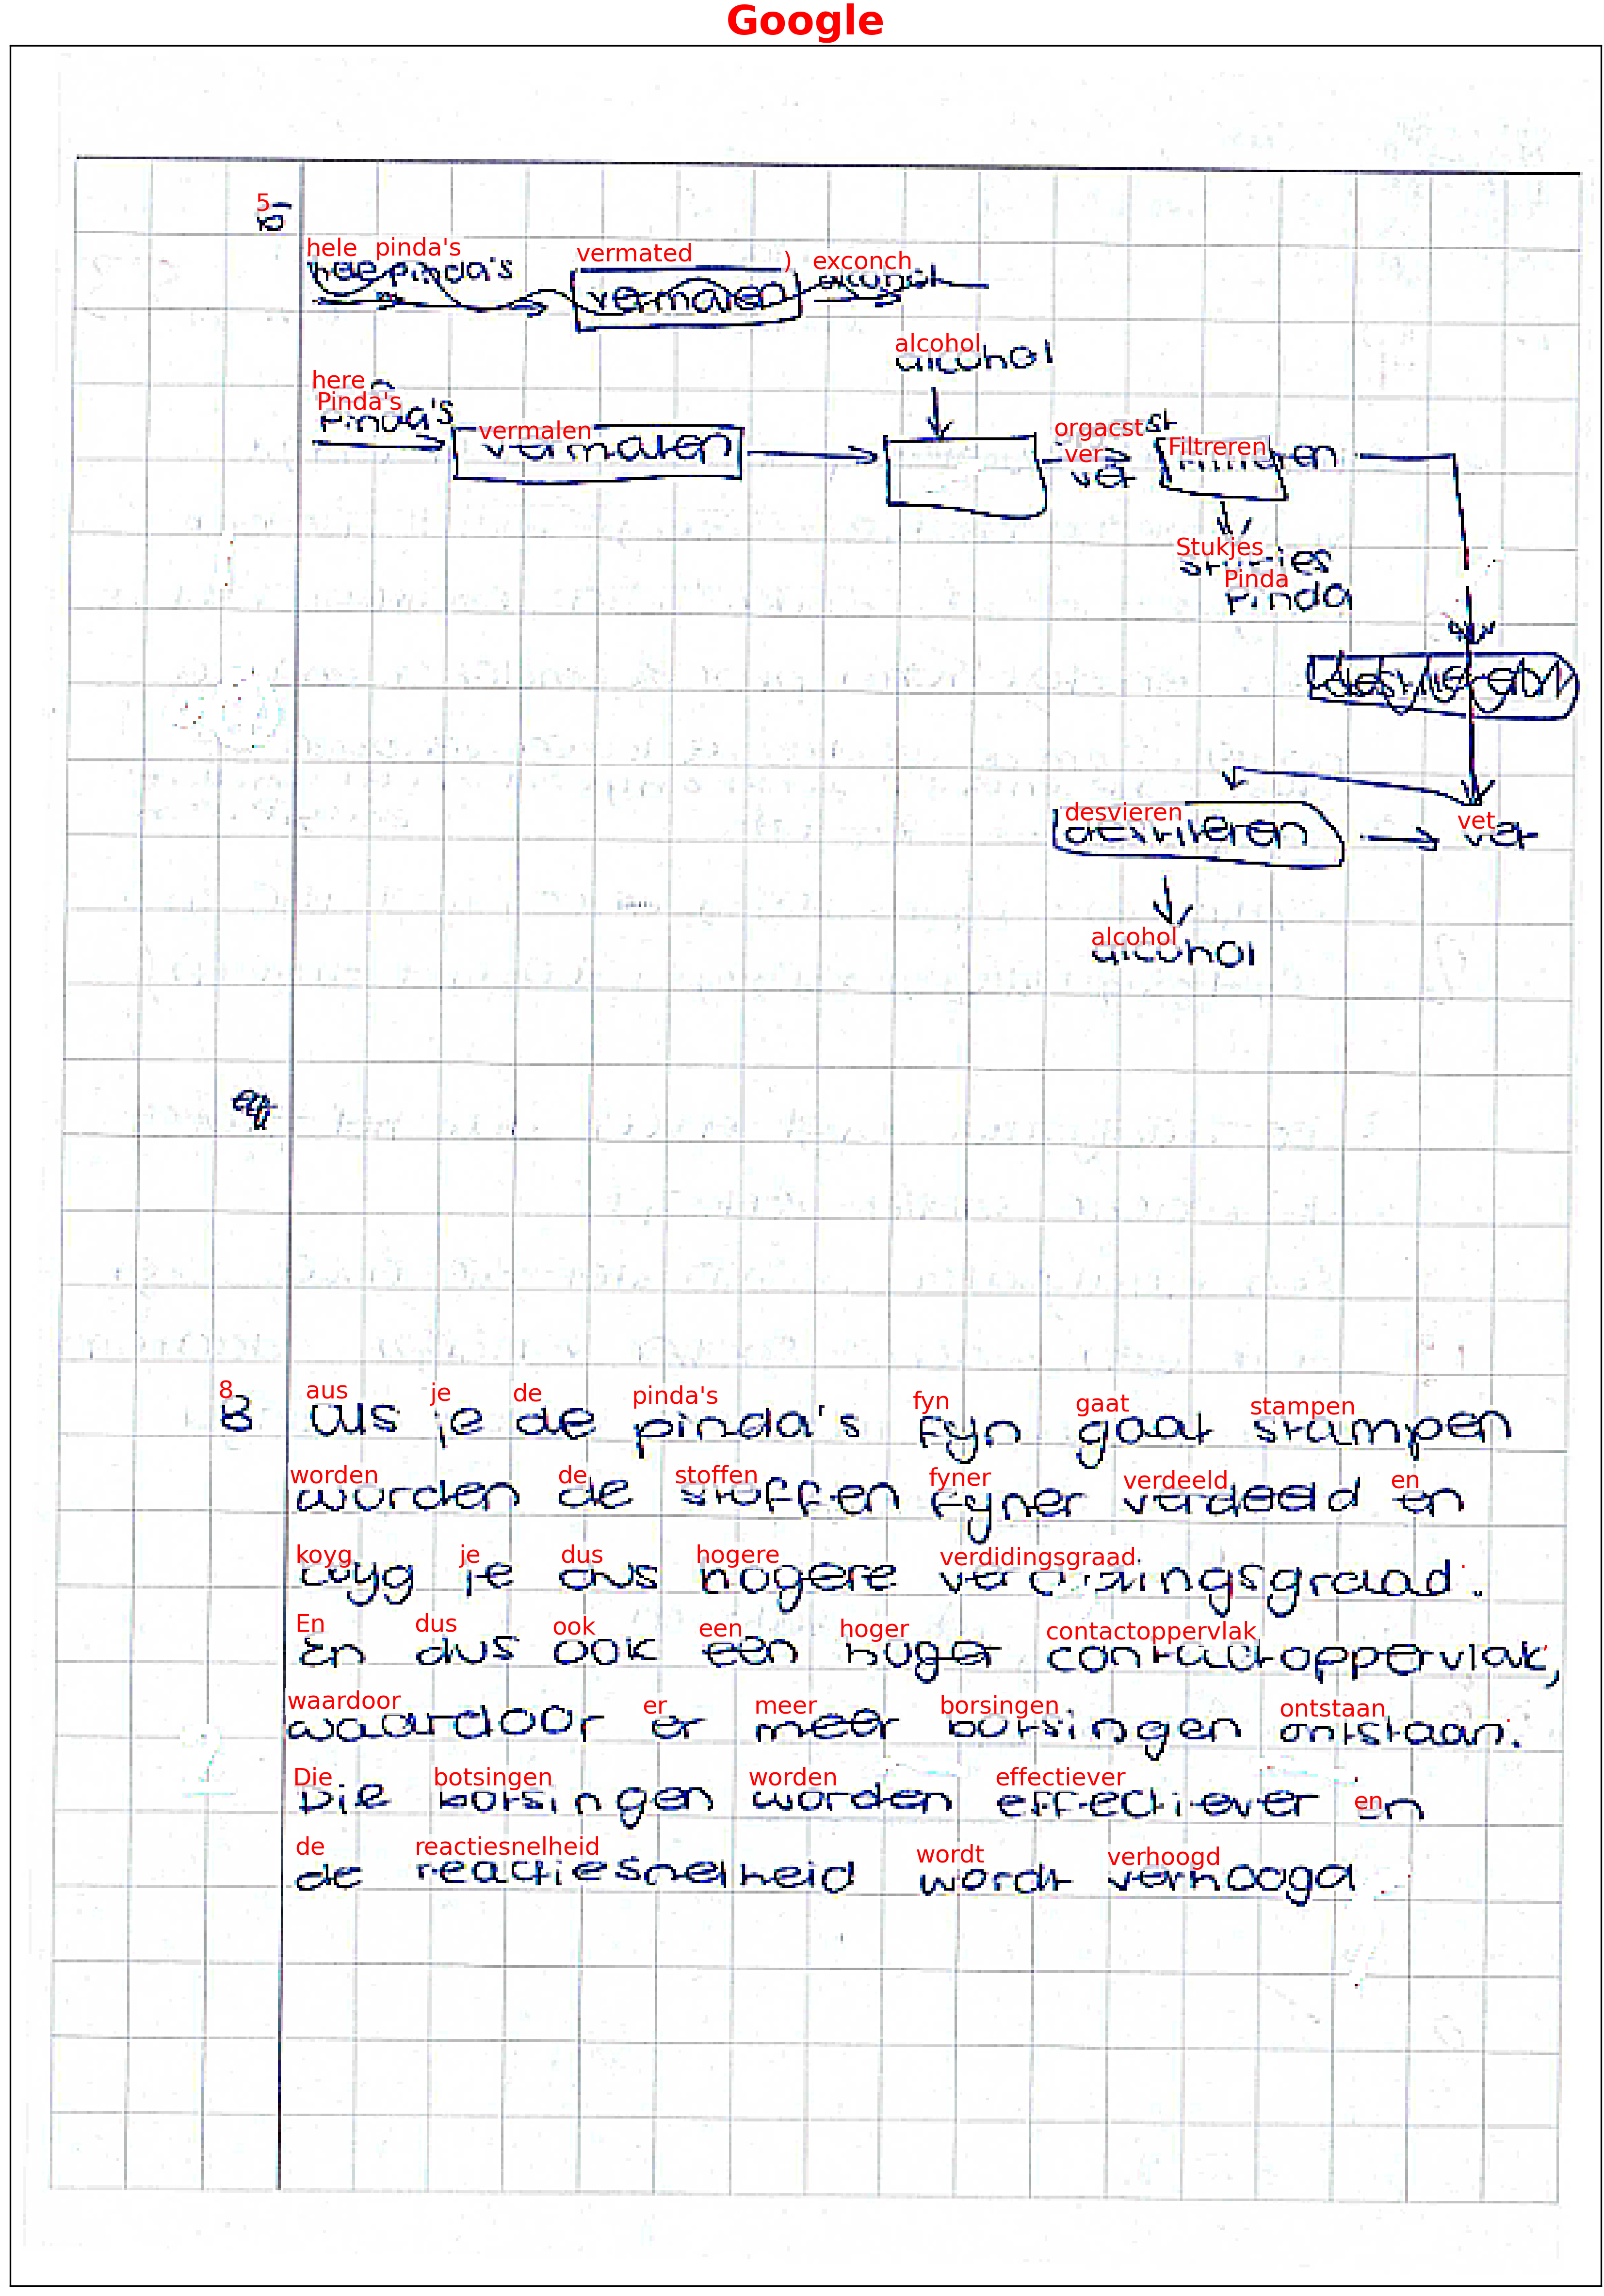 Google
5
hele pinda's
hele pinda's
vermated ) exconch
vermalen alcohol
alcohol
alcohol
here
Pinda's
Pinda's
vermalen
vermalen
orgacst
ver
vet
Filtreren
en
Stukjes
Stukjes
Pinda
Pinda
destilleren
desvieren
destilleren
vet
vet
alcohol
alcohol
eq
8 aus je de pinda's fyn gaat stampen
8 als je de pinda's fyn gaat stampen
worden de stoffen fyner verdeeld en
worden de stoffen fyner verdeeld en
koyg je dus hogere verdidingsgraad.
kryg je dus hogere verdelingsgraad.
En dus ook een hoger contactoppervlak ,
En dus ook een hoger contactoppervlak,
waardoor er meer borsingen ontstaan .
waardoor er meer botsingen ontstaan.
Die botsingen worden effectiever en
Die botsingen worden effectiever en
de reactiesnelheid wordt verhoogd
de reactiesnelheid wordt verhoogd